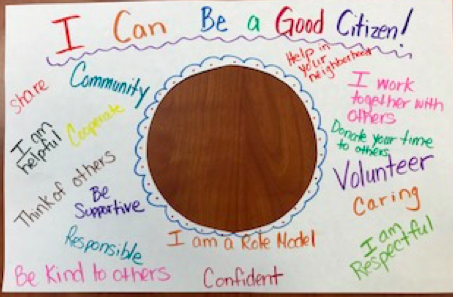 I Can Be a Good Citizen!
Help in
your
neighborhood
Share
Community
I work
together with
others
I am
helpful
Cooperate
Donate your time
to others
Think of others
Volunteer
Be
Supportive
Caring
Responsible
I am a Role Model
I am
Respectful
Be Kind to others
Confident